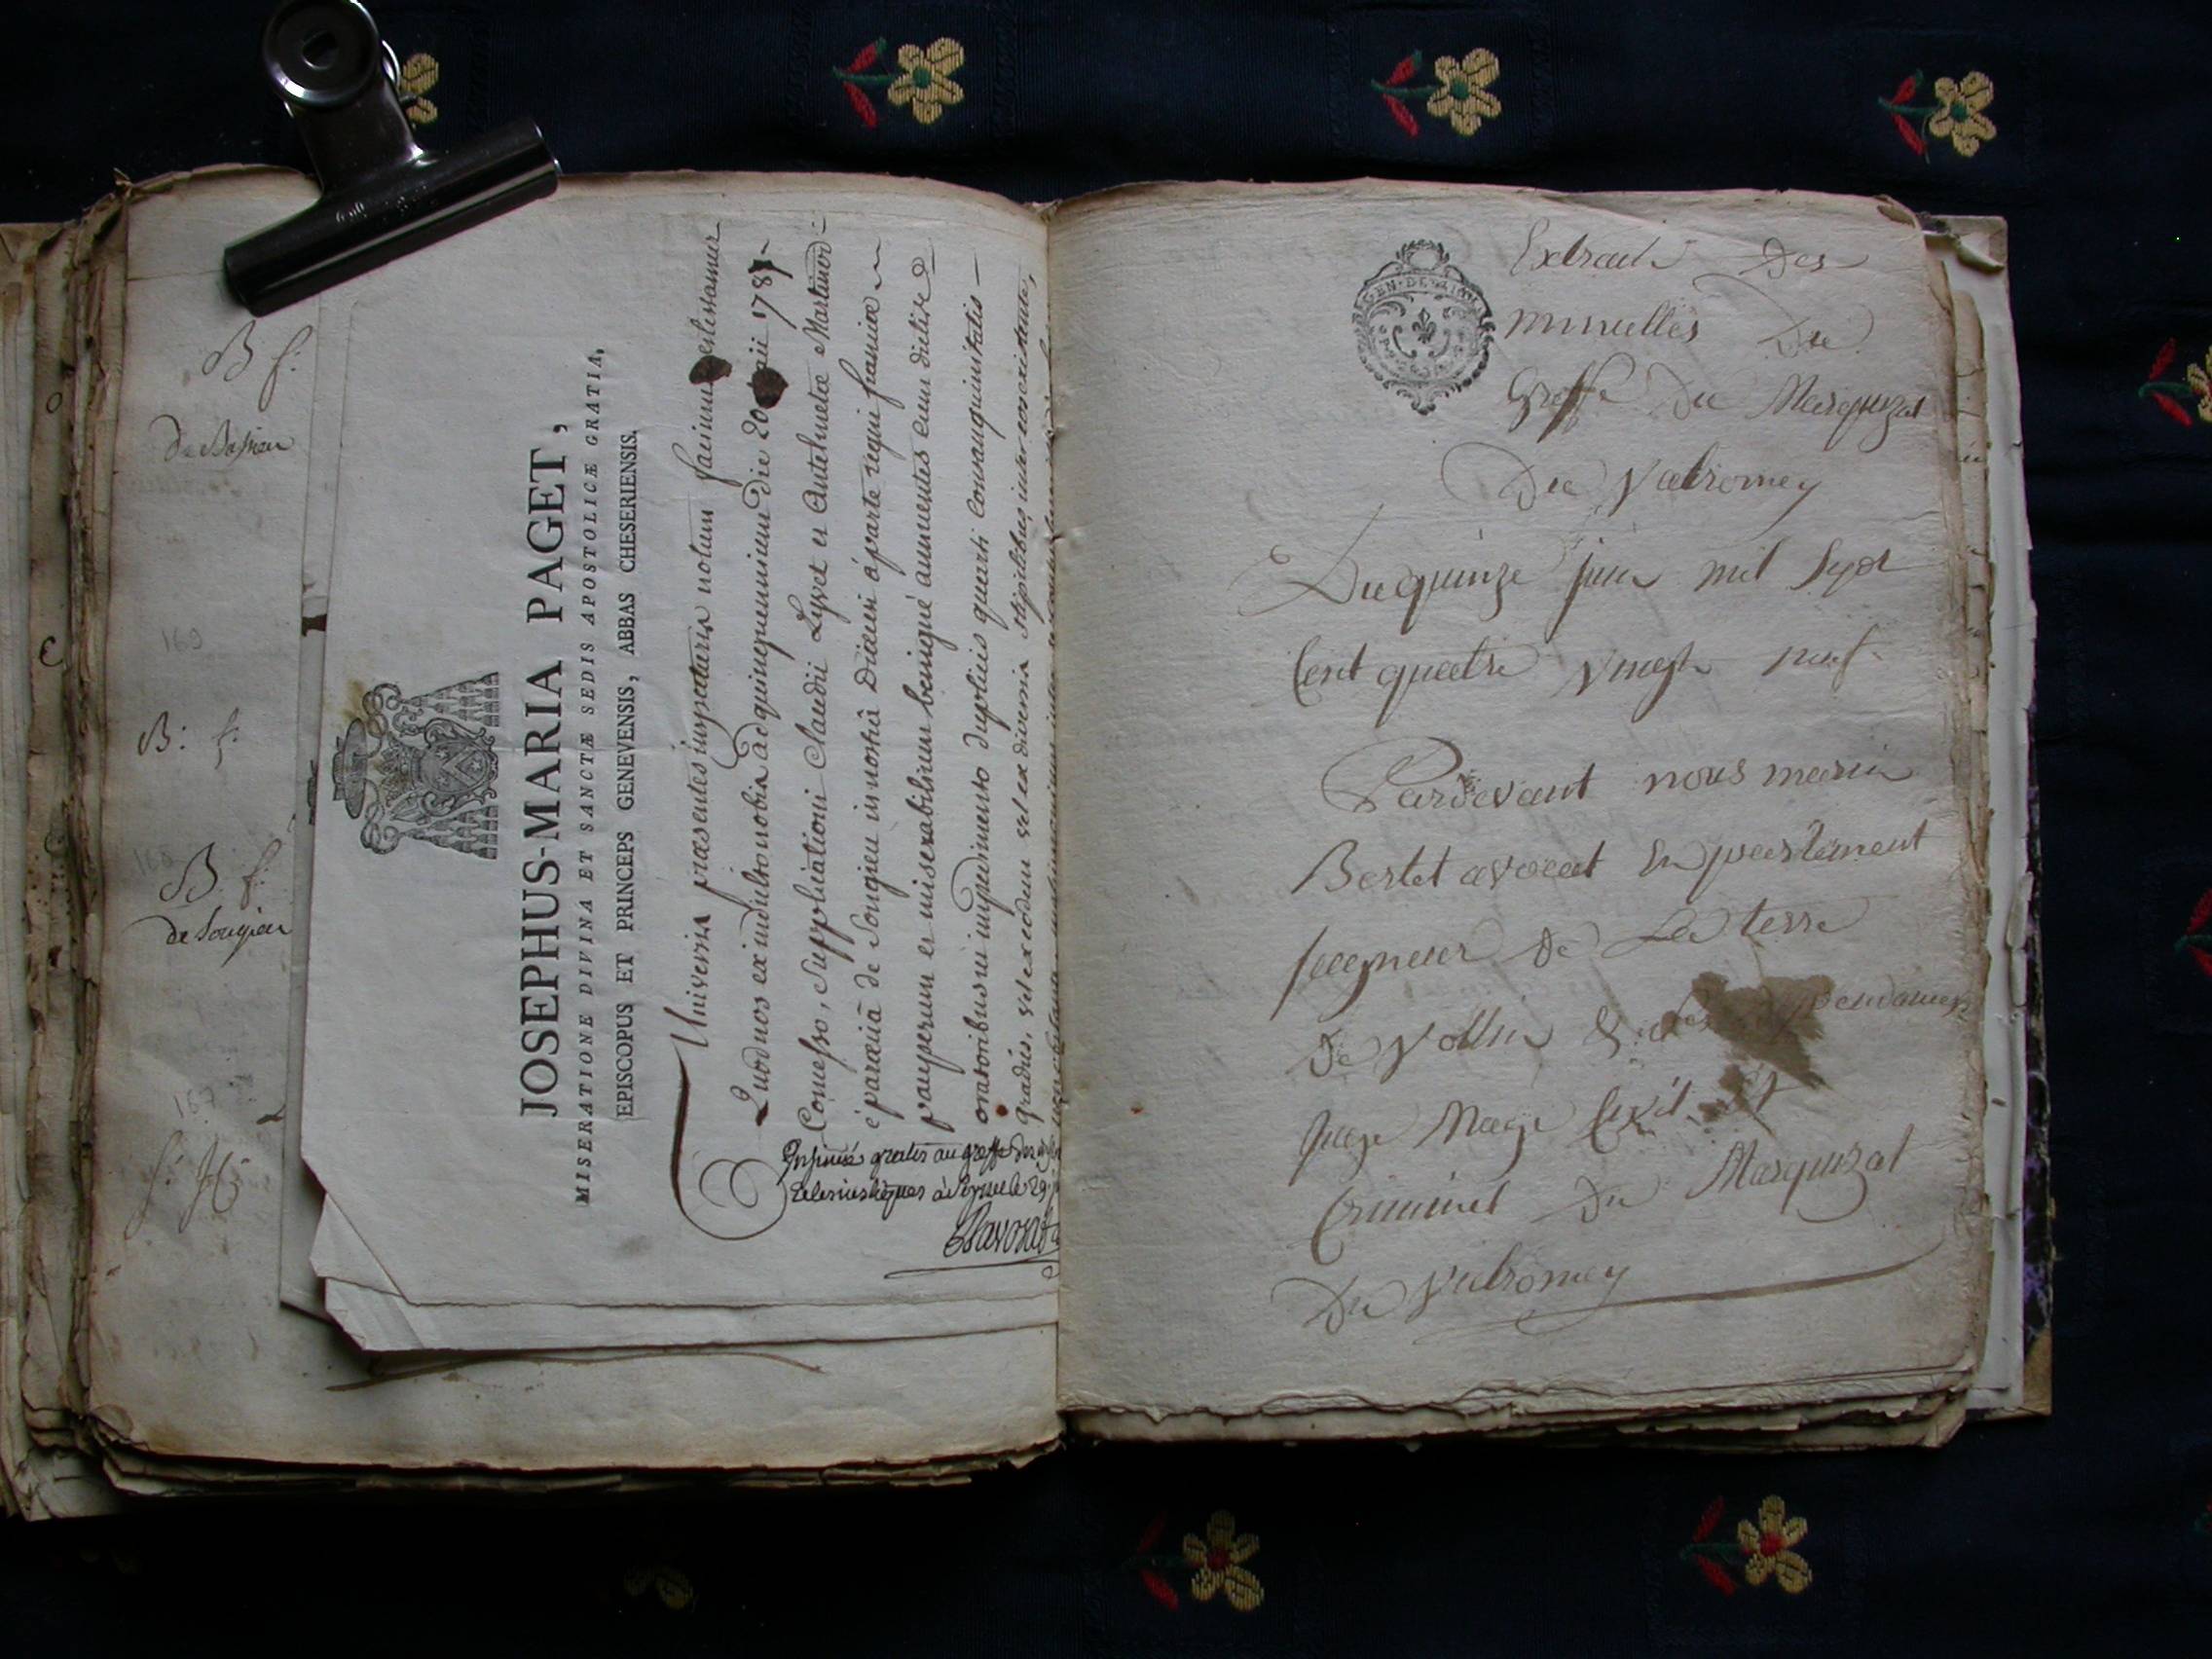 B f.
de Bassieu
169
B: f.
168
B. f.
de Songieu
167
f. H.
JOSEPHUS-MARIA PAGET,
MISERATIONE DIVINA ET SANCTÆ SEDIS APOSTOLICÆ GRATIA,
EPISCOPUS ET PRINCEPS GENEVENSIS, ABBAS CHESERIENSIS.
Universis præsentes inspecturis notum facimus et testamur
Quod nos ex indulto nobis ad quinquennium die 20 1787
Concesso, Supplicationi Claudii Lyvet et Anthelmetæ Martinod
è parœciâ de Songieu in nostrâ Diœcesi à parte regni franciæ
pauperum et miserabilium benignè annuentes cum dictis
oratoribus in impedimento duplicis quarti consanguinitatis
gradûs, vel ex eodem vel ex diversis stipitibus inter eos existente,
Insinué gratis au greffe des
Eclesiastiques à le 29
GEN · DE
Extrait des
minuttes du
Greffe du Marquizat
du Valromey
Du quinze juin mil Sept
Cent quatre vingt neuf
Pardevant nous marin
Bertet avocat En parlement
seigneur de La terre
de vollin & dependances
juge Mage Civil et
Criminel du Marquizat
du Valromey